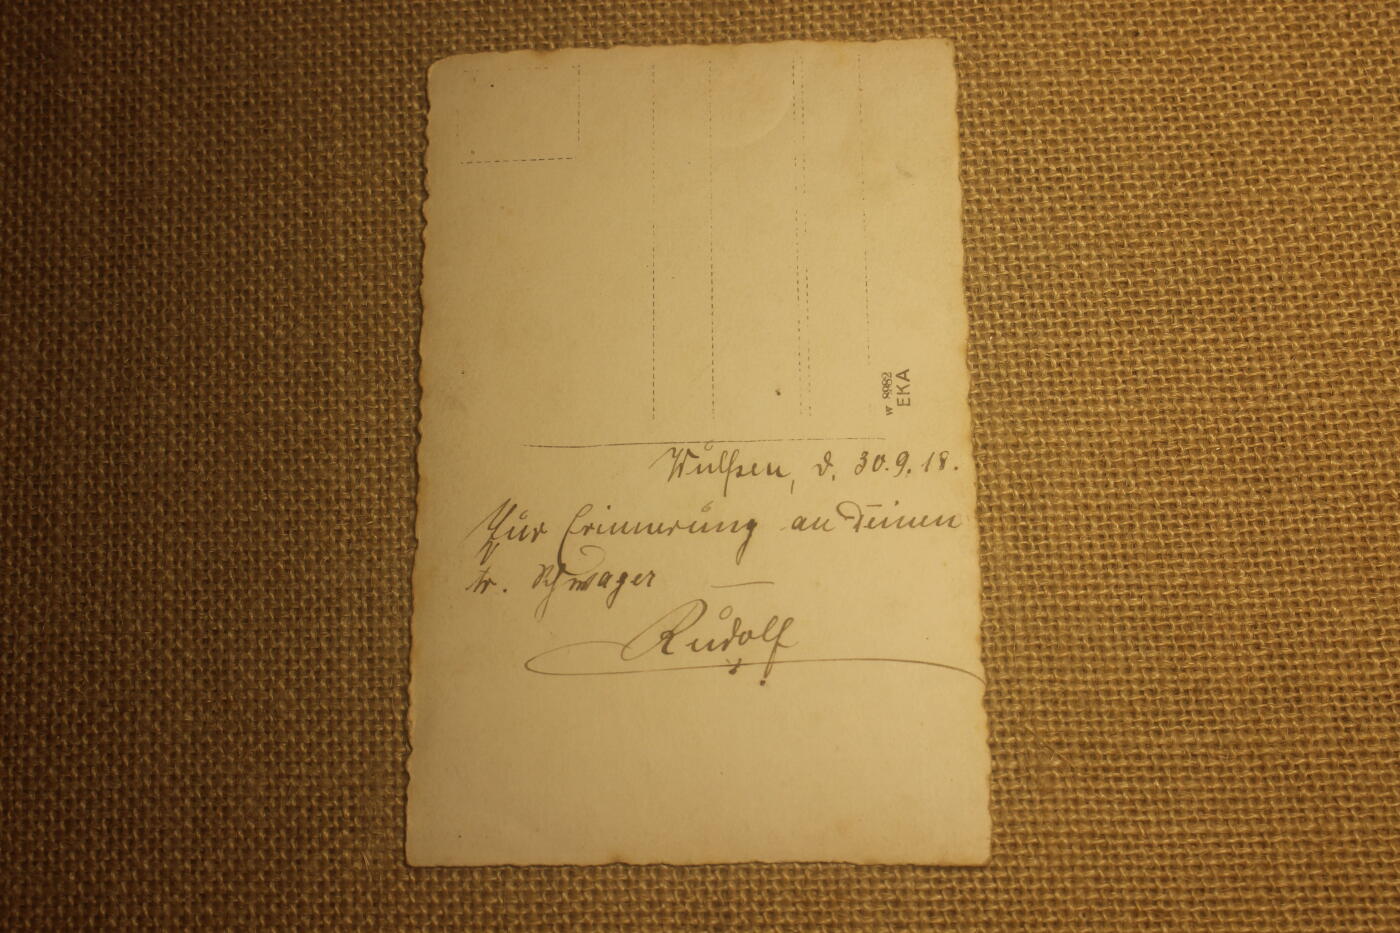 W 8982
EKA
Wulfsen, d. 30.9.18.
Zur Erinnerung an Deinen
tr. Schwager —
Rudolf